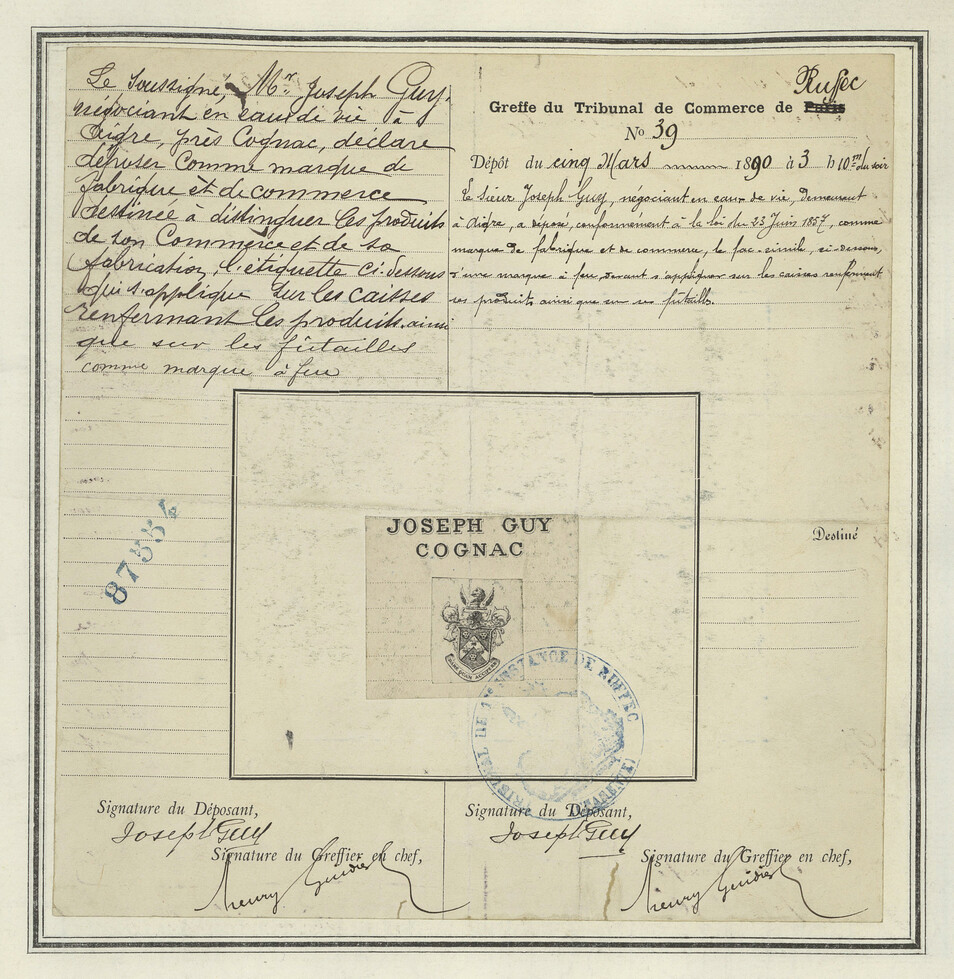 Le Soussigné, Mr. Joseph Guy,
négociant en eau de vie à
Aigre, près Cognac, déclare
déposer comme marque de
fabrique et de commerce
destinée à distinguer les produits
de son Commerce et de sa
fabrication, l'étiquette ci-dessous
qui s'applique sur les caisses
renfermant les produits, ainsi
que sur les fûtailles
comme marque à feu
Ruffec
Greffe du Tribunal de Commerce de Paris
No 39
Dépôt du cinq Mars 1890 à 3 h 10 m du soir
Le sieur Joseph Guy, négociant en eaux de vie, demeurant
à Aigre, a déposé, conformément à la loi du 23 Juin 1857, comme
marque de fabrique et de commerce, le fac-simile, ci-dessous,
d'une marque à feu, devant s'appliquer sur les caisses renfermant
ses produits ainsi que sur ses futailles.
87554
JOSEPH GUY
COGNAC
Destiné
TRIBUNAL DE 1re INSTANCE DE RUFFEC
(CHARENTE)
Signature du Déposant,
Joseph Guy
Signature du Greffier en chef,
Henry
Signature du Déposant,
Joseph Guy
Signature du Greffier en chef,
Henry